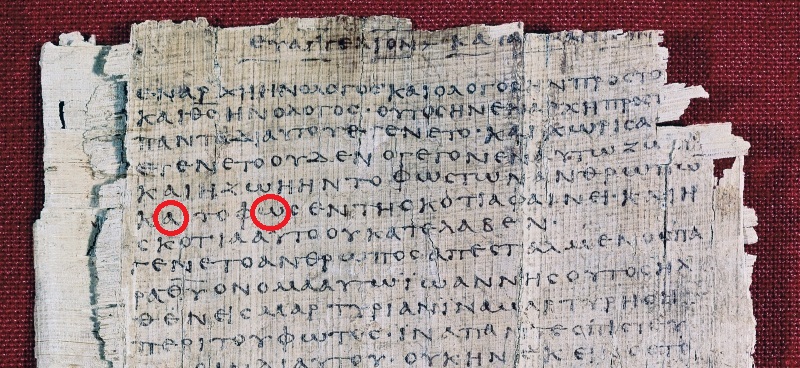 ΕΥΑΓΓΕΛΙΟΝ ΚΑΤΑ
ΕΝΑΡΧΗΗΝΟΛΟΓΟϹΚΑΙΟΛΟΓΟϹΗΝΠΡΟϹΤΟ
ΚΑΙΘϹΗΝΟΛΟΓΟϹ·ΟΥΤΟϹΗΝΕΝΑΡΧΗΠΡΟϹΤ
ΠΑΝΤΑΔΙΑΥΤΟΥΕΓΕΝΕΤΟ·ΚΑΙΧΩΡΙϹΑ
ΕΓΕΝΕΤΟΟΥΔΕΝΟΓΕΓΟΝΕΝΕΝΑΥΤΩΖΩ
ΚΑΙΗΖΩΗΗΝΤΟΦΩϹΤΩΝΑΝΘΡΩΠΩ
ΚΑΙΤΟΦΩϹΕΝΤΗϹΚΟΤΙΑΦΑΙΝΕΙ·ΚΑΙΗ
ϹΚΟΤΙΑΑΥΤΟΟΥΚΑΤΕΛΑΒΕΝ·
ΕΓΕΝΕΤΟΑΝΘΡΩΠΟϹΑΠΕϹΤΑΛΜΕΝΟϹΠΑ
ΡΑΘΥΟΝΟΜΑΑΥΤΩΙΩΑΝΝΗϹΟΥΤΟϹΗΛ
ΘΕΝΕΙϹΜΑΡΤΥΡΙΑΝΙΝΑΜΑΡΤΥΡΗϹΗ
ΠΕΡΙΤΟΥΦΩΤΟϹ·ΙΝΑΠΑΝΤΕϹΠΙϹΤΕΥ
ΔΙΑΥΤΟΥ·ΟΥΚΗΝΕΚΕΙΝΟϹΤΟ